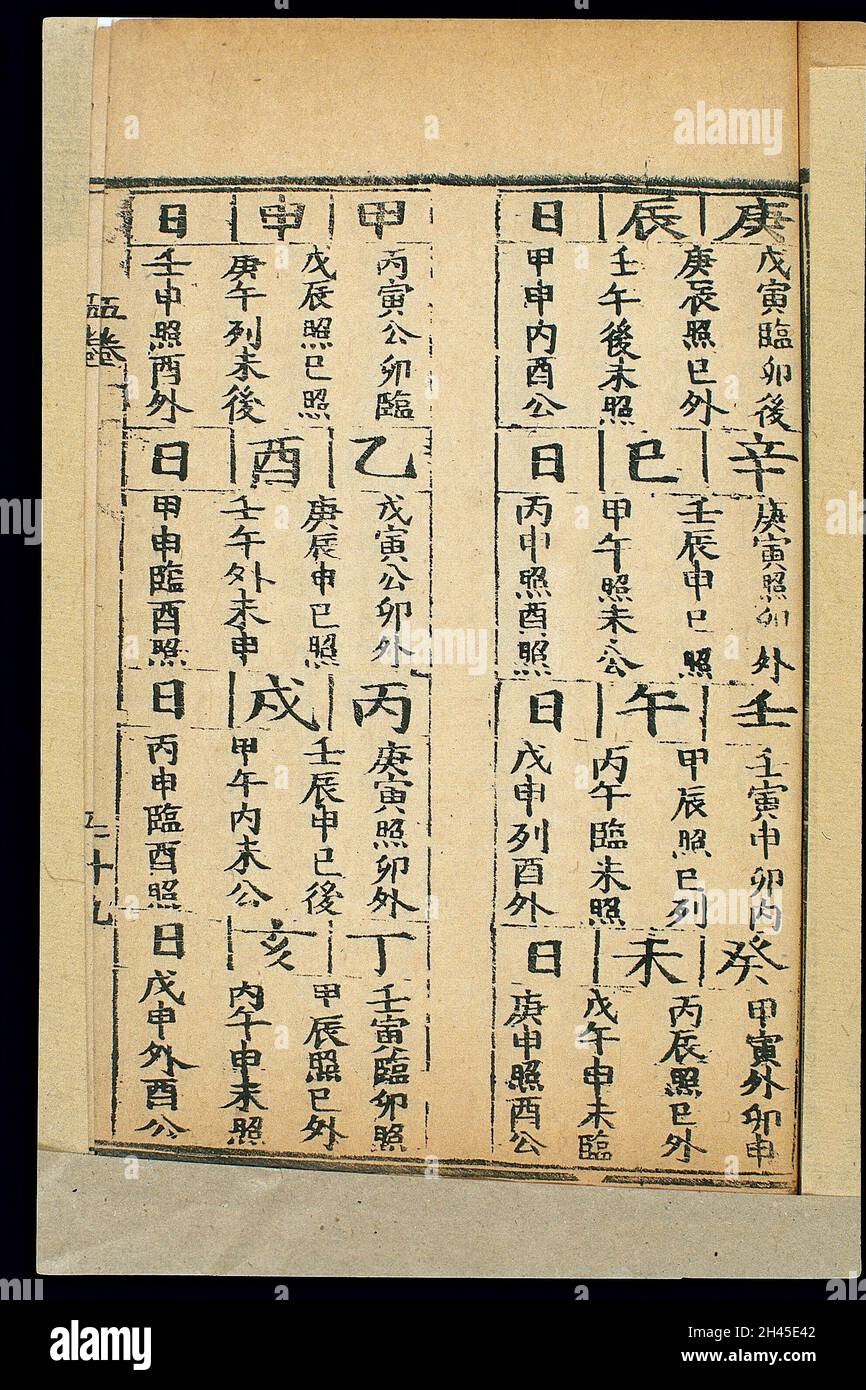 庚辰日
戊寅臨卯後
庚辰照巳外
壬午後未照
甲申内酉公
辛巳日
庚寅照卯外
壬辰申巳照
甲午照未公
丙申照酉照
壬午日
壬寅申卯内
甲辰照巳列
丙午臨未照
戊申列酉外
癸未日
甲寅外卯申
丙辰照巳外
戊午申未臨
庚申照酉公
甲申日
丙寅公卯臨
戊辰照巳照
庚午列未後
壬申照酉外
乙酉日
戊寅公卯外
庚辰申巳照
壬午外未申
甲申臨酉照
丙戌日
庚寅照卯外
壬辰申巳後
甲午内未公
丙申臨酉照
丁亥日
壬寅臨卯照
甲辰照巳外
丙午申未照
戊申外酉公
五卷
二十九
alamy
a
alamy
Image ID: 2H45E42
www.alamy.com